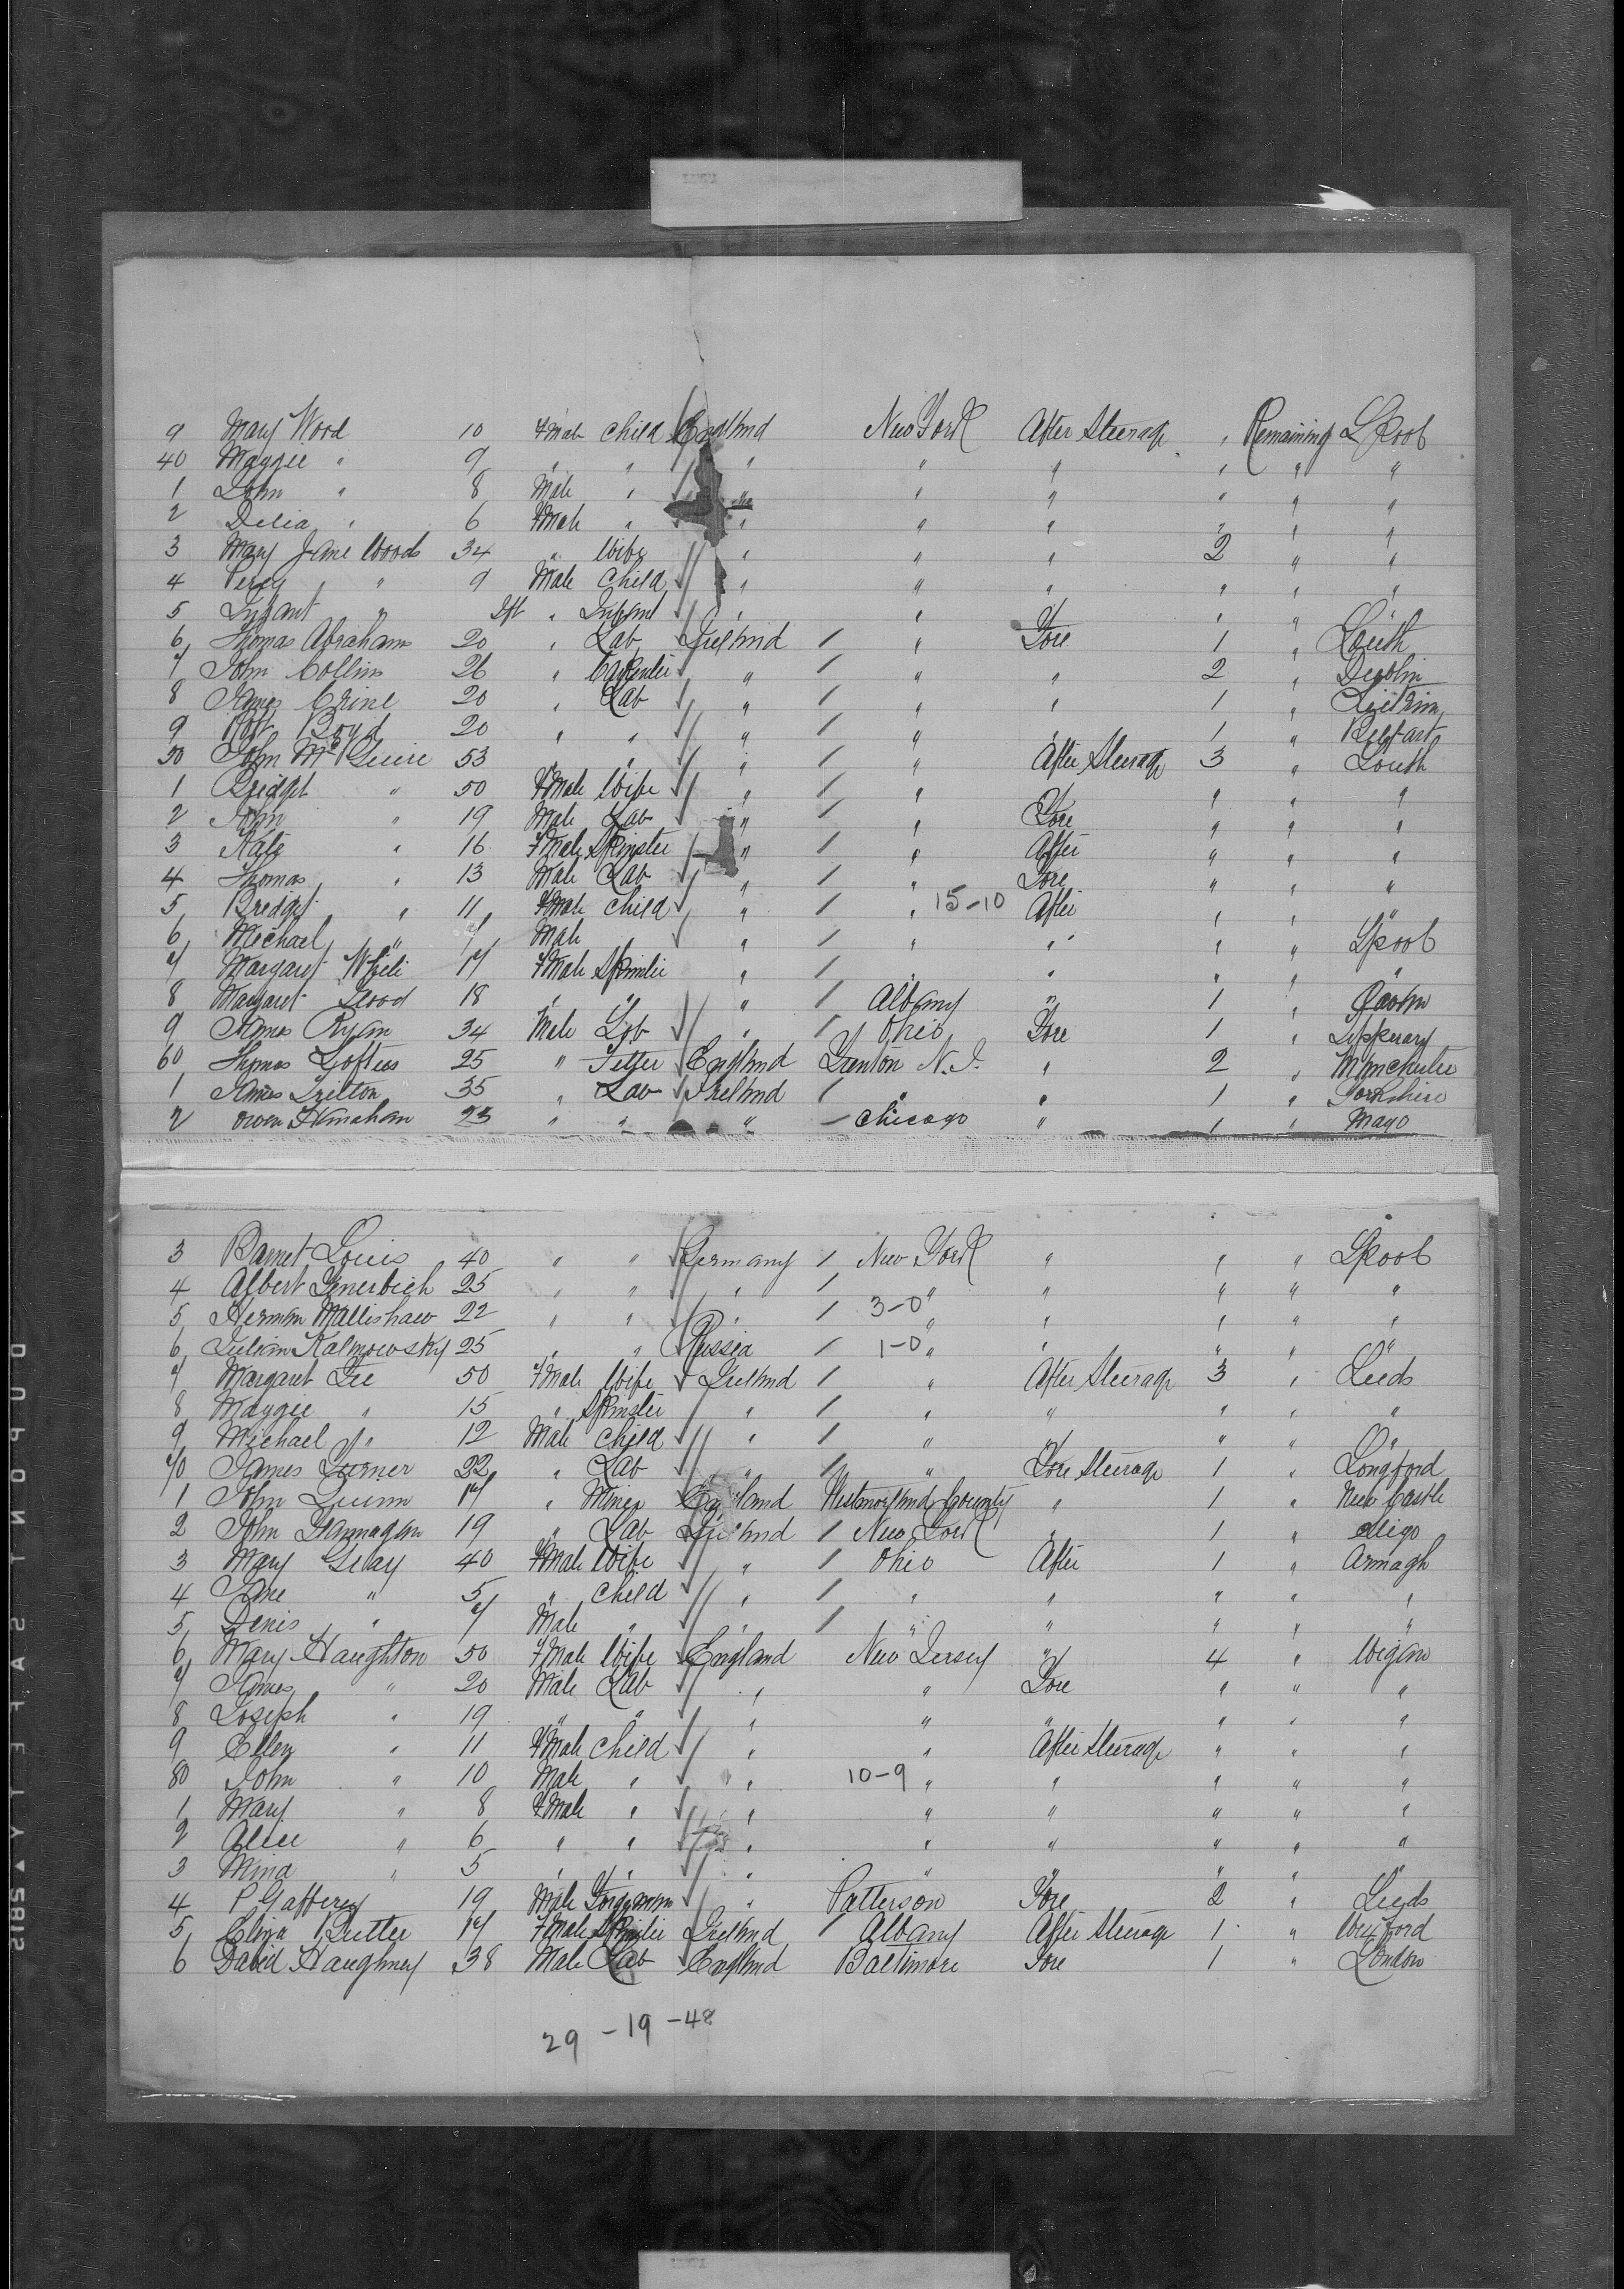 9 Mary Wood 10 FMale Child England New York After Steerage " Remaining L'Pool
40 Maggie " 9 " " " " " " " "
1 John " 8 Male " " " " " " "
2 Delia " 6 FMale " " " " " " "
3 Mary Jane Woods 34 " Wife " " " 2 " "
4 Percy " 9 Male Child " " " " " "
5 Infant " Inft " Infant " " " " " "
6 Thomas Abraham 20 " Lab Ireland / " Fore 1 " Louth
7 John Collins 26 " Carpenter " / " " 2 " Dublin
8 James Crine 20 " Lab " / " " 1 " Leitrim
9 Robt Boyd 20 " " " / " " 1 " Belfast
50 John McGuire 53 " " " / " After Steerage 3 " Louth
1 Bridget " 50 FMale Wife " / " " " " "
2 John " 19 Male Lab " / " Fore " " "
3 Kate " 16 FMale Spinster " / " After " " "
4 Thomas " 13 Male Lab " / " Fore " " "
5 Bridget " 11 FMale Child " / " 15-10 After " " "
6 Michael " 7 Male " " / " " " " L'Pool
7 Margaret 17 FMale Spinster " / " " " " "
8 Margaret Flood 18 " " " / Albany " 1 "
9 James Ryan 34 Male Lab " / Ohio Fore 1 " Tipperary
60 Thomas Loftus 25 " Fitter England Trenton N.J. " 2 " Manchester
1 James 35 " Lab Ireland / " " 1 " Yorkshire
2 Owen Hanahan 23 " " " - Chicago " 1 " Mayo
3 Barnet Louis 40 " " Germany / New York " " " L'Pool
4 Albert 25 " " " / " " " " "
5 Herman Mallishaw 22 " " " / 3-0 " " " " "
6 Julian Kalmowsky 25 " " Russia / 1-0 " " " " "
7 Margaret 50 FMale Wife Ireland / " After Steerage 3 " Leeds
8 Maggie " 15 " Spinster " / " " " " "
9 Michael " 12 Male Child " / " " " " "
70 James Turner 22 " Lab " / " Fore Steerage 1 " Longford
1 John Quinn 17 " Miner England Westmorland County " 1 " New Castle
2 John Flannagan 19 " Lab Ireland / New York " 1 " Sligo
3 Mary Geary 40 FMale Wife " / Ohio After 1 " Armagh
4 Jane " 5 " Child " / " " " " "
5 Denis " 7 Male " " / " " " " "
6 Mary Haughton 50 FMale Wife England New Jersey " 4 " Wigan
7 James " 20 Male Lab " " Fore " " "
8 Joseph " 19 " " " " " " " "
9 Ellen " 11 FMale Child " " After Steerage " " "
80 John " 10 Male " " 10-9 " " " " "
1 Mary " 8 FMale " " " " " " "
2 Alice " 6 " " " " " " " "
3 Mina " 5 " " " " " " " "
4 P Gafferey 19 Male Forgeman " Patterson Fore 2 " Leeds
5 Eliza Rutter 17 FMale Spinster Ireland / Albany After Steerage 1 " Wexford
6 David Haughney 38 Male Lab England Baltimore Fore 1 " London
29-19-48